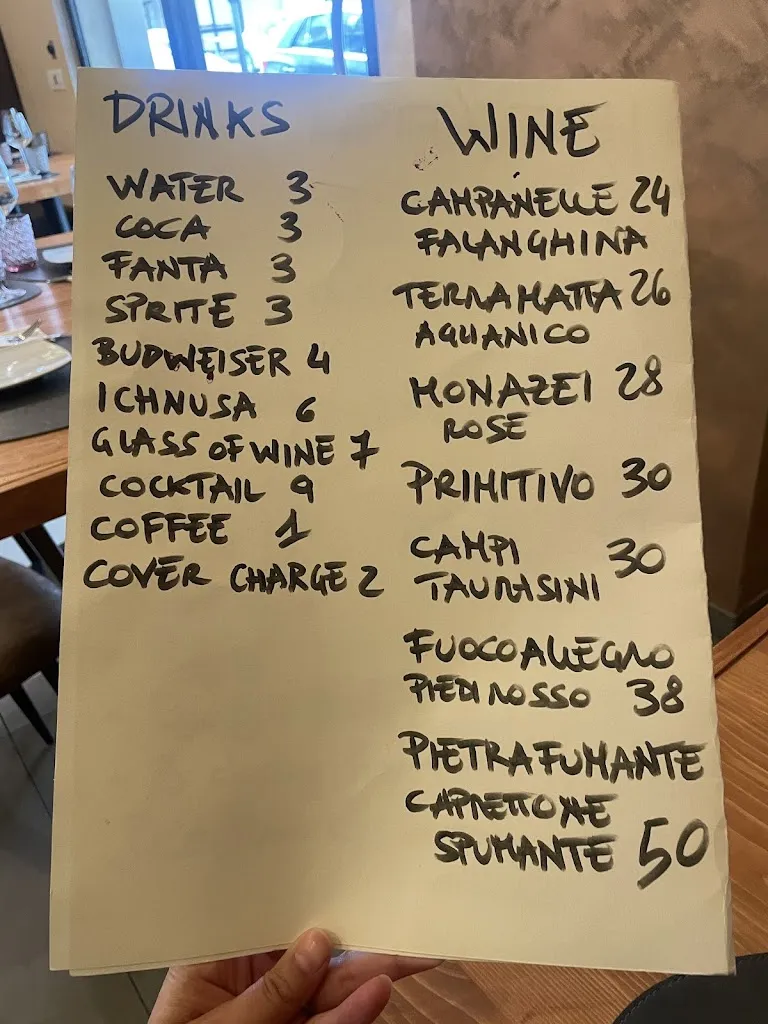 DRINKS
WATER 3
COCA 3
FANTA 3
SPRITE 3
BUDWEISER 4
ICHNUSA 6
GLASS OF WINE 7
COCKTAIL 9
COFFEE 1
COVER CHARGE 2
WINE
CAMPANELLE 24
FALANGHINA
TERRA MATTA 26
AGLIANICO
MONAZEI 28
ROSE
PRIMITIVO 30
CAMPI 30
TAURASINI
FUOCOALLEGRO
PIEDIROSSO 38
PIETRAFUMANTE
CAPRETTONE
SPUMANTE 50